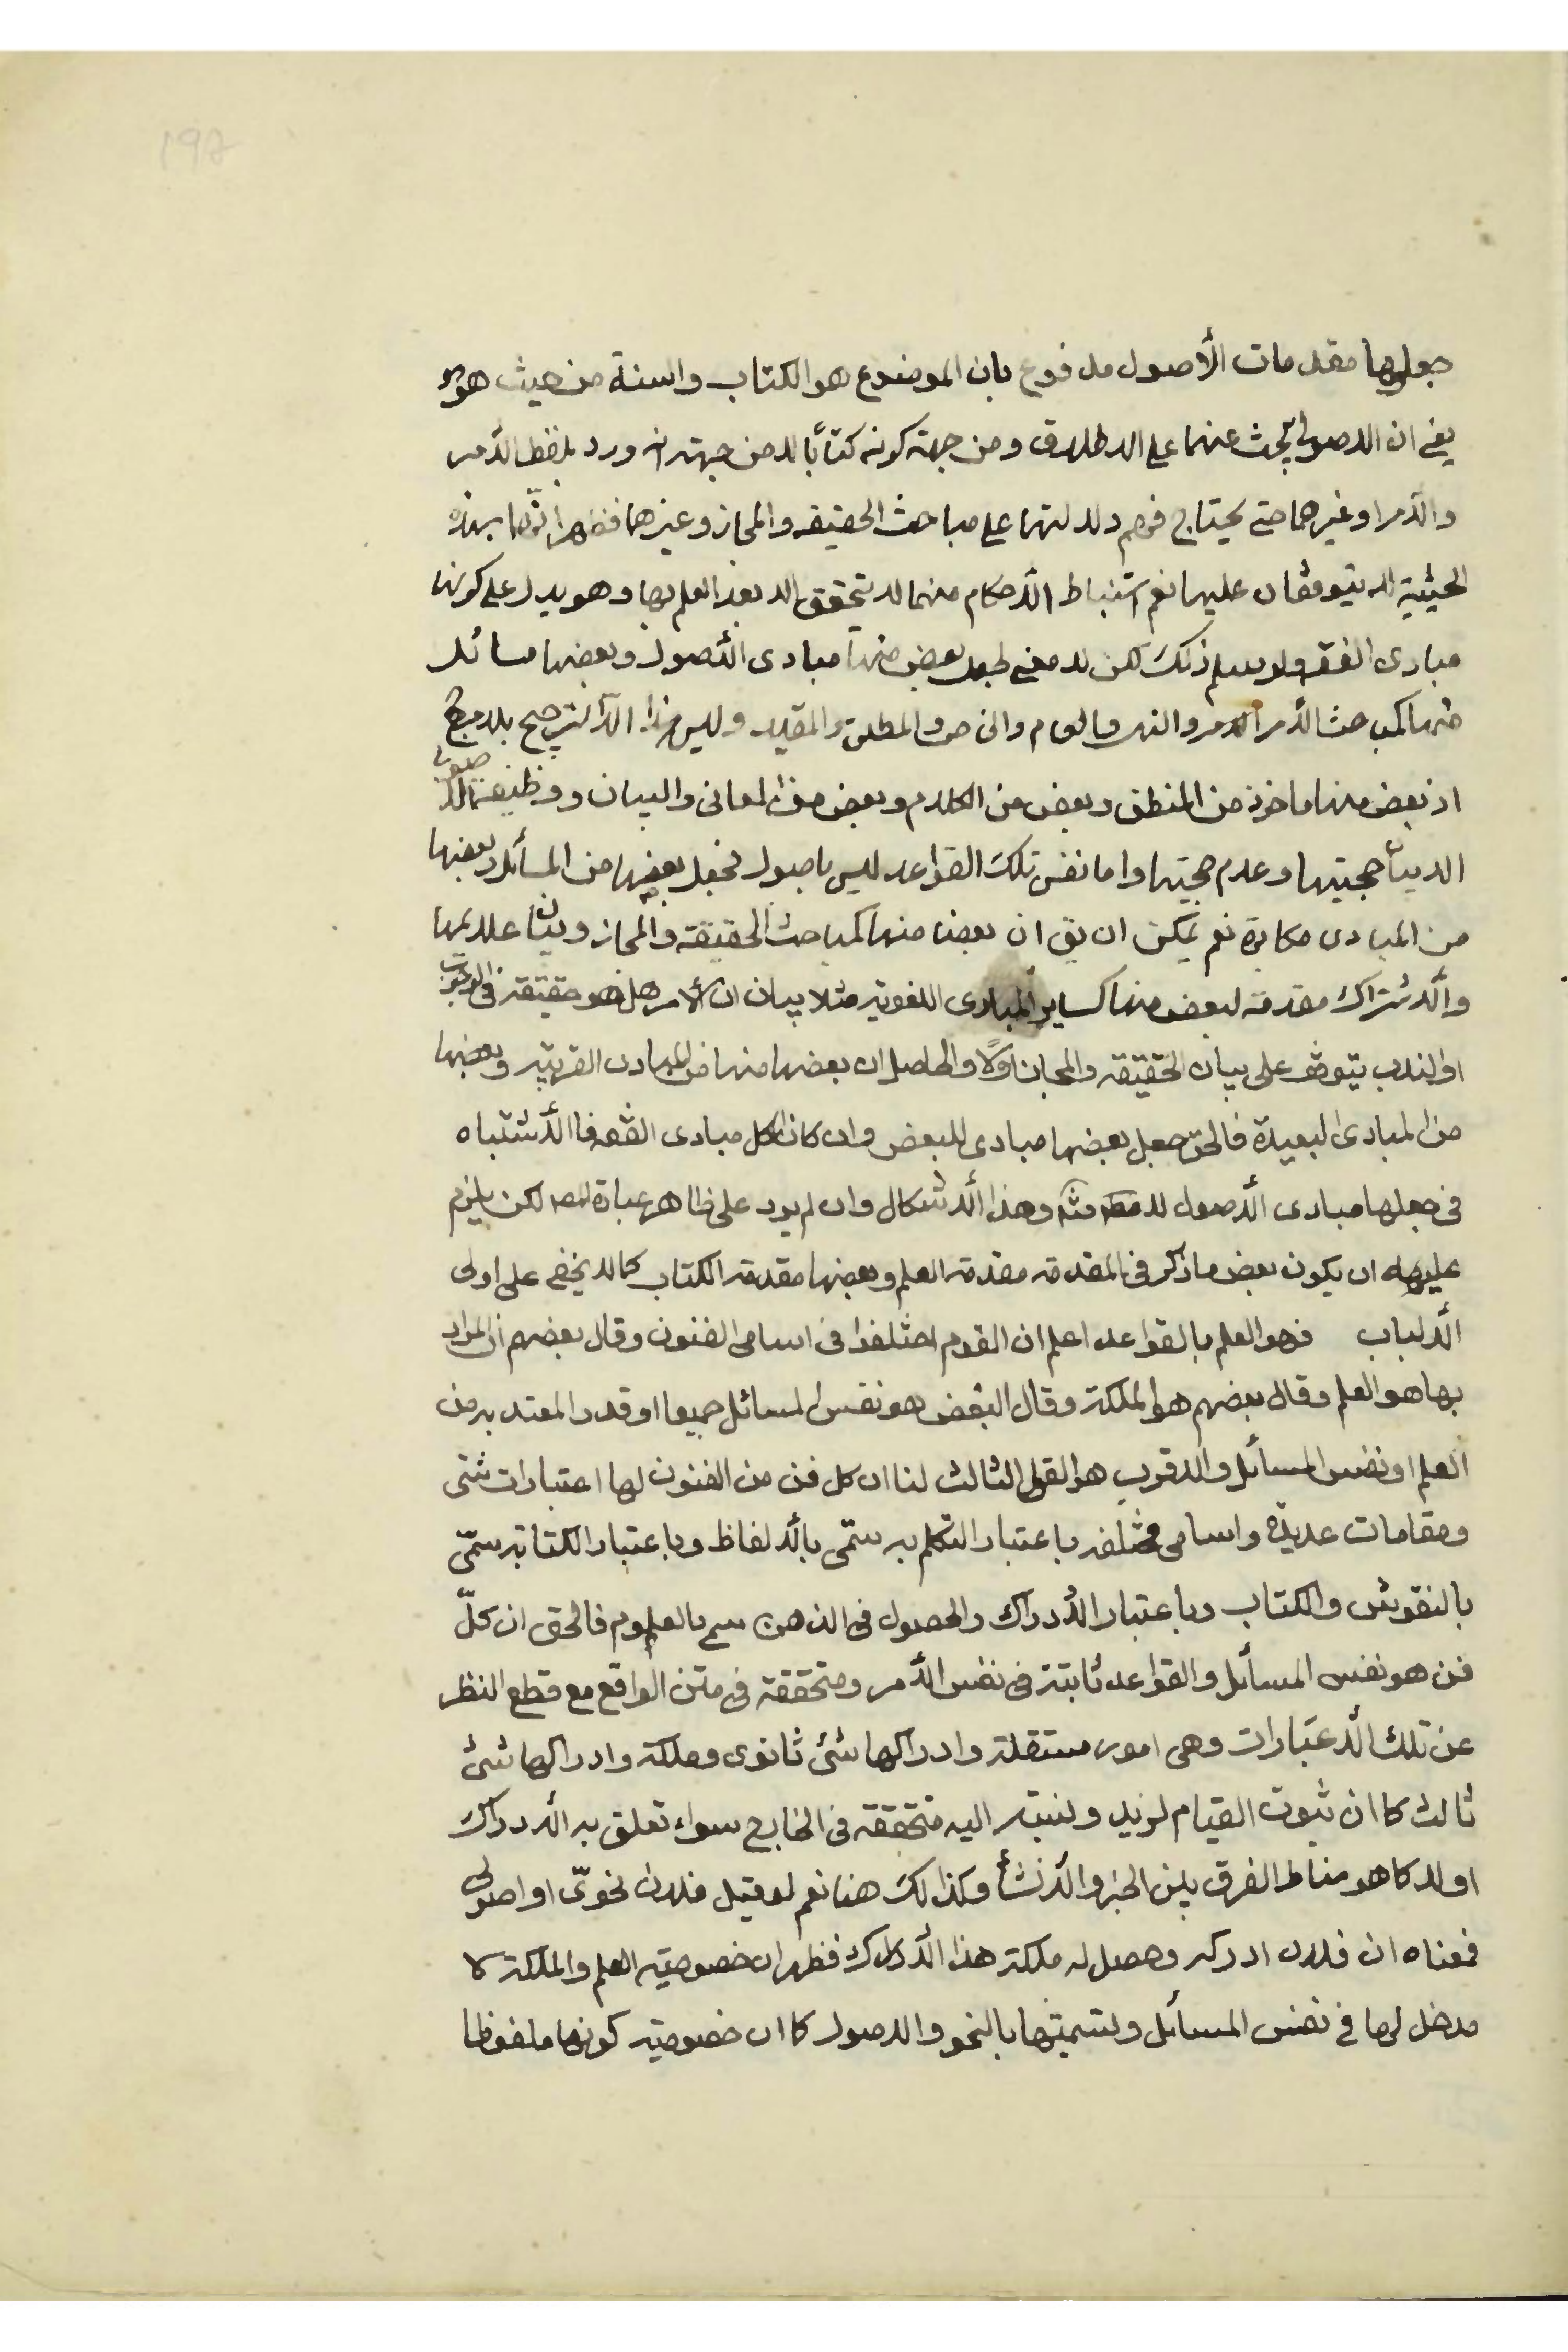 جعلوها مقدمات الأصول مدفوع بان الموضوع هو الكتاب والسنة من حيث هو هو
يعنى ان الاصولى يبحث عنهما على الاطلاق ومن جهة كونه كتابًا لا من جهة انه ورد بلفظ الأمر
والأمر او غيرهما حتى يحتاج فهم دلالتها على مباحث الحقيقه والمجاز وغيرهما فظهر انهما بهذه
الحيثية لا يتوقفان عليها نعم استنباط الأحكام منهما لا يتحقق الا بعد العلم بها وهو يدل على كونها
مبادى الفقه ولو سلم ذلك لكن لا معنى لجعل بعض منها مبادى الأصول وبعضها مسائله
منها كمباحث الأمر والنهى والعام والخاص والمطلق والمقيد وليس هذا الا الترجيح بلا مرجح
اذ بعض منها ماخوذ من المنطق وبعض من الكلام وبعض من المعانى والبيان ووظيفة الاصولى
الا بيان حجيتها وعدم حجيتها واما نفس تلك القواعد ليس باصول فجعل بعضها من المسائل وبعضها
من المبادى مكابرة نعم يمكن ان يق ان بعضا منها كمباحث الحقيقة والمجاز وبيان علايمها
والأشتراك مقدمة لبعض منها كساير المبادى اللغويه مثلا بيان ان الأمر هل هو حقيقة فى الوجوب
او الندب يتوقف على بيان الحقيقة والمجاز اولًا والحاصل ان بعضها منها من المبادى القريبه وبعضها
من المبادى البعيدة فالحق جعل بعضها مبادى للبعض وان كان الكل مبادى الفقه فالأشتباه
فى جعلها مبادى الأصول لا منه وهذا الأشكال وان لم يرد على ظاهر عبارة المص لكن يلزم
عليه ان يكون بعض ما ذكر فى المقدمة مقدمة العلم وبعضها مقدمة الكتاب كما لا يخفى على اولى
الألباب فهو العلم بالقواعد اعلم ان القوم اختلفوا فى اسامى الفنون وقال بعضهم ان المراد
بها هو العلم وقال بعضهم هو الملكة وقال البعض هو نفس المسائل جميعا او قدر المعتد به من
العلم او نفس المسائل والاقرب هو القول الثالث لنا ان كل فن من الفنون لها اعتبارات شتى
ومقامات عديدة واسامى مختلفه باعتبار التكلم به ستمى بالألفاظ وباعتبار الكتابة ستمّى
بالنقوش والكتاب وباعتبار الأدراك والحصول فى الذهن سمى بالعلوم فالحق ان كلّ
فن هو نفس المسائل والقواعد ثابتة فى نفس الأمر ومتحققة فى متن الواقع مع قطع النظر
عن تلك الأعتبارات وهى امور مستقلة وادراكها شئ ثانوى وملكة وادراكها شئ
ثالث كما ان ثبوت القيام لزيد ونسبته اليه متحققة فى الخارج سواء تعلق به الأدراك
اولا كما هو مناط الفرق بين الخبر والأنشأ وكذالك هنا نعم لو قيل فلان نحوىّ او اصولى
فمعناه ان فلان ادركه وحصل له ملكة هذا الأدراك فظهر ان خصوصية العلم والملكة لا
مدخل لها فى نفس المسائل وتسميتها بالنحو والاصول كما ان خصوصية كونها ملفوظا